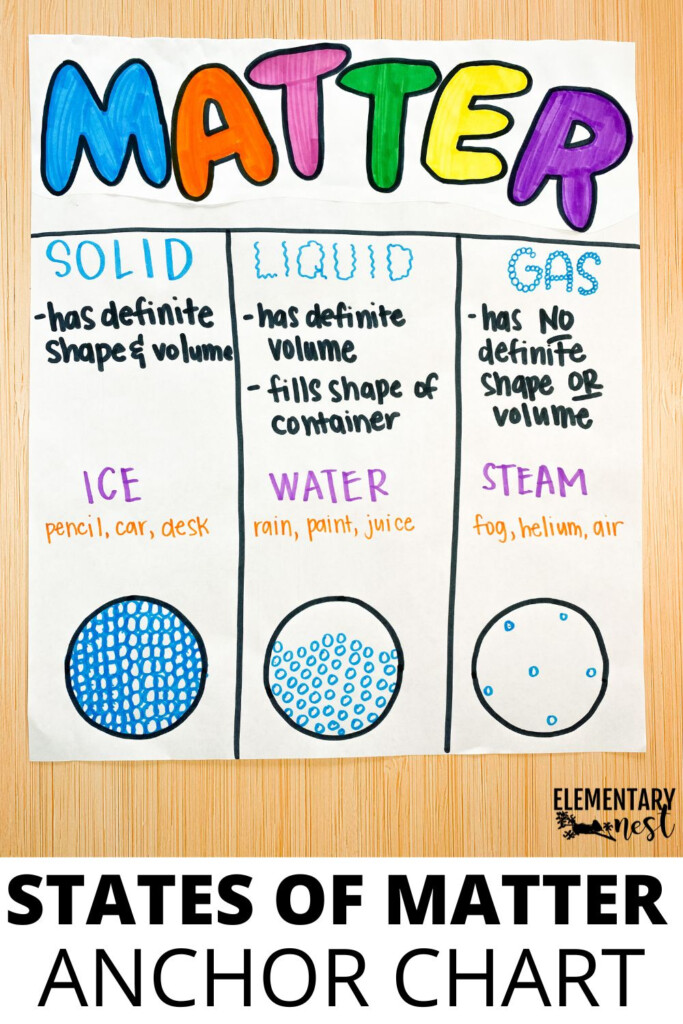 MATTER
SOLID
-has definite
shape & volume
ICE
pencil, car, desk
LIQUID
-has definite
volume
- fills shape of
container
WATER
rain, paint, juice
GAS
- has NO
definite
shape OR
volume
STEAM
fog, helium, air
ELEMENTARY
nest
STATES OF MATTER
ANCHOR CHART